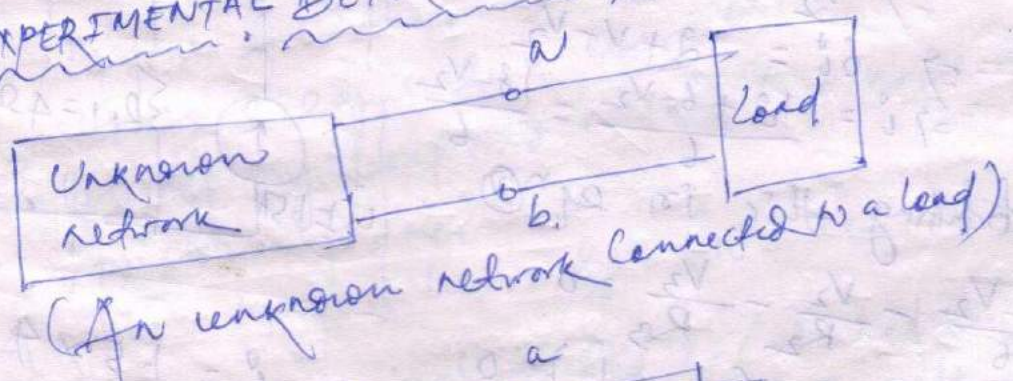 EXPERIMENTAL
a
Load
Unknown
network
b.
(An unknown network Connected to a load)
a